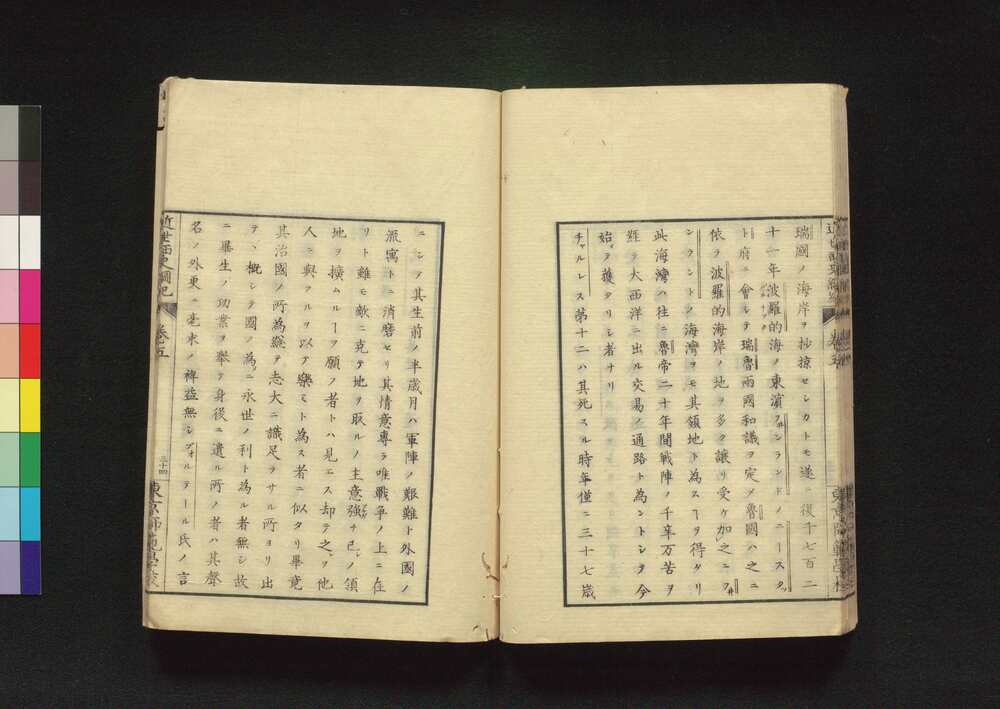 瑞國ノ海岸ヲ抄掠セシカトモ遂ニ復千七百二
十一年波羅的海ノ東濱フ井ンランドノニースタ
ト府ニ會シテ瑞魯兩國和議ヲ定メ魯國ハ之ニ
依テ波羅的海岸ノ地ヲ多ク讓リ受ケ加之ニフ井
ンランドノ海灣ヲモ其領地ト為スヿヲ得タリ
此海灣ハ往ニ魯帝二十年間戰陣ノ千辛万苦ヲ
經テ大西洋ニ出ル交易ノ通路ト為ントシテ今
始テ獲タリシ者ナリ
チャルレス第十二ハ其死スル時年僅ニ三十七歳
ニシテ其生前ノ半歳月ハ軍陣ノ艱難ト外國ノ
流寓トニ消磨セリ其情意專ラ唯戰爭ノ上ニ在
リト雖モ敵ニ克テ地ヲ取ルノ主意強チ己レノ領
地ヲ擴ムルヿヲ願ノ者トハ見エス却テ之ヲ他
人ニ與フルヲ以テ樂ミト為ス者ニ似タリ畢竟
其治國ノ所為總テ志大ニ識足ラサル所ヨリ出
テ、概シテ國ノ為ニ永世ノ利ト為ル者無シ故
ニ畢生ノ功業ヲ舉テ身後ニ遺ル所ノ者ハ其聲
名ノ外更ニ毫末ノ裨益無シヴォルテール氏ノ言
近世西史綱紀 卷五
三十四
東京師範學校